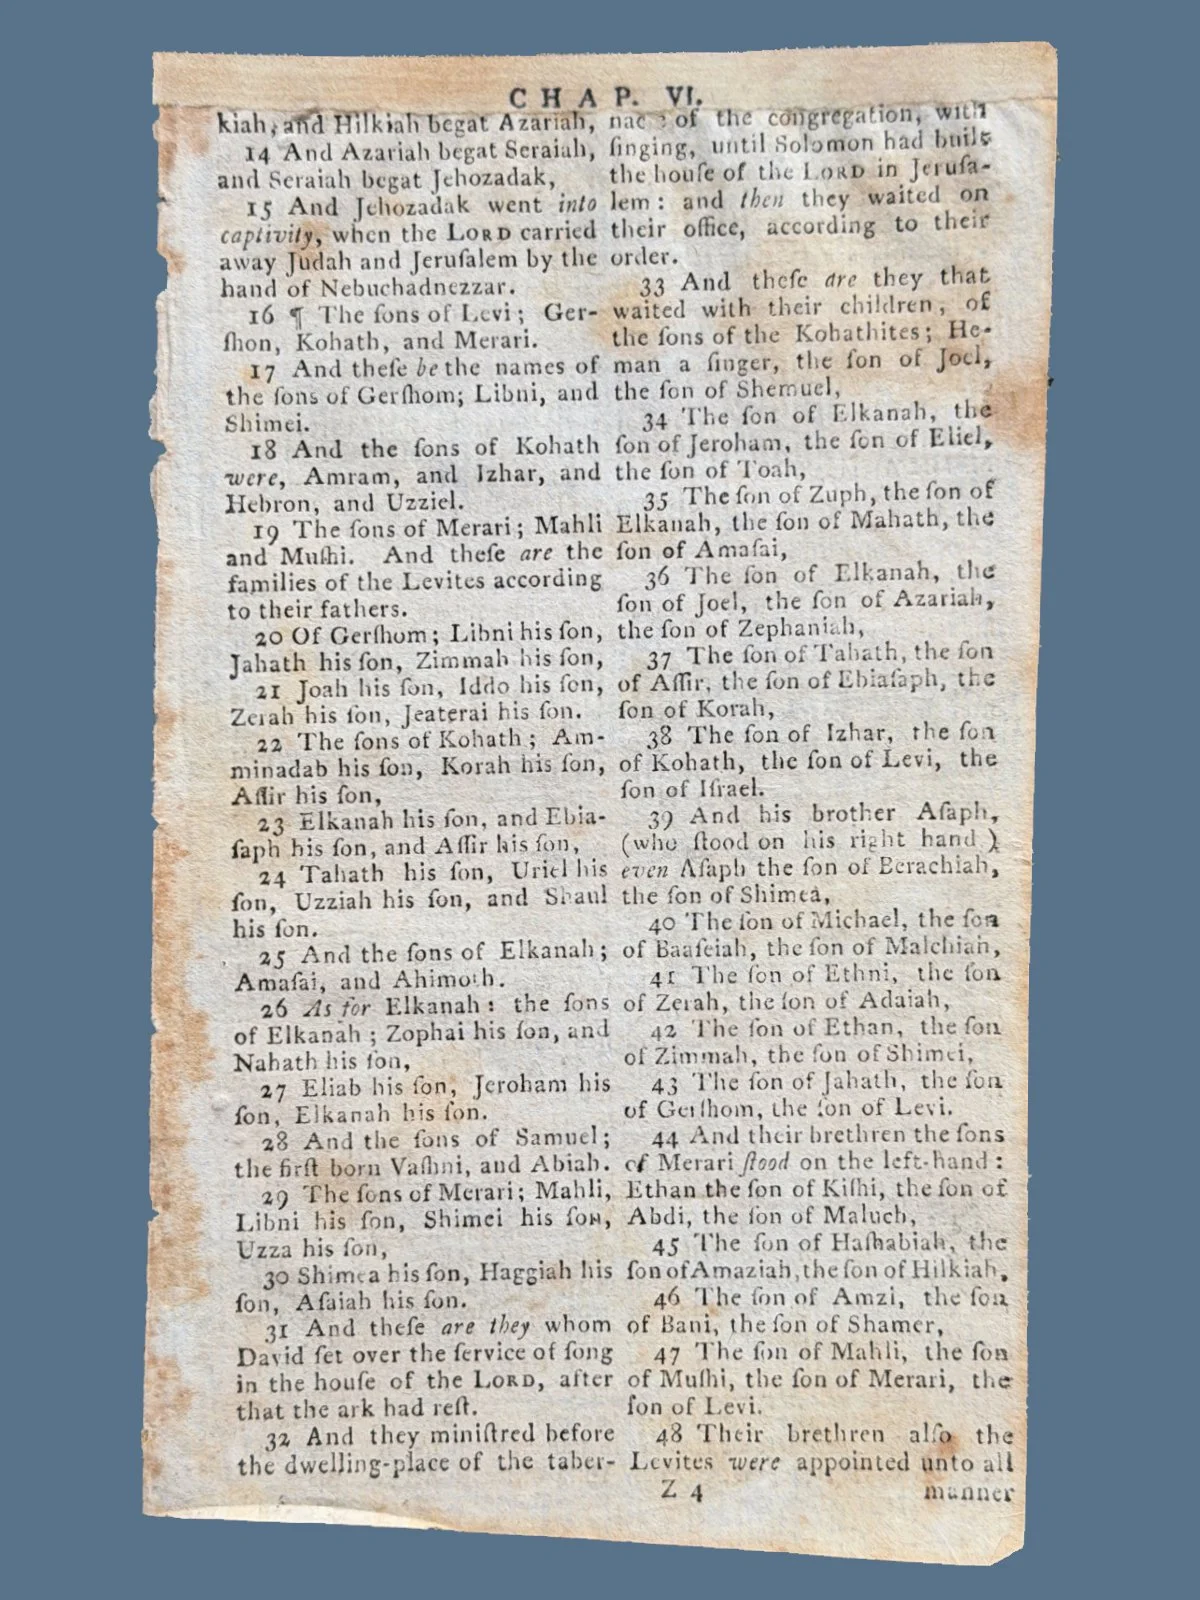 CHAP. VI.
kiah, and Hilkiah begat Azariah,
14 And Azariah begat Seraiah,
and Seraiah begat Jehozadak,
15 And Jehozadak went into
captivity, when the LORD carried
away Judah and Jeruſalem by the
hand of Nebuchadnezzar.
16 ¶ The ſons of Levi; Ger-
ſhon, Kohath, and Merari.
17 And theſe be the names of
the ſons of Gerſhom; Libni, and
Shimei.
18 And the ſons of Kohath
were, Amram, and Izhar, and
Hebron, and Uzziel.
19 The ſons of Merari; Mahli
and Muſhi. And theſe are the
families of the Levites according
to their fathers.
20 Of Gerſhom; Libni his ſon,
Jahath his ſon, Zimmah his ſon,
21 Joah his ſon, Iddo his ſon,
Zerah his ſon, Jeaterai his ſon.
22 The ſons of Kohath; Am-
minadab his ſon, Korah his ſon,
Aſſir his ſon,
23 Elkanah his ſon, and Ebia-
ſaph his ſon, and Aſſir his ſon,
24 Tahath his ſon, Uriel his
ſon, Uzziah his ſon, and Shaul
his ſon.
25 And the ſons of Elkanah;
Amaſai, and Ahimoth.
26 As for Elkanah: the ſons
of Elkanah; Zophai his ſon, and
Nahath his ſon,
27 Eliab his ſon, Jeroham his
ſon, Elkanah his ſon.
28 And the ſons of Samuel;
the firſt born Vaſhni, and Abiah.
29 The ſons of Merari; Mahli,
Libni his ſon, Shimei his ſon,
Uzza his ſon,
30 Shimea his ſon, Haggiah his
ſon, Aſaiah his ſon.
31 And theſe are they whom
David ſet over the ſervice of ſong
in the houſe of the LORD, after
that the ark had reſt.
32 And they miniſtred before
the dwelling-place of the taber-
of the congregation, with
ſinging, until Solomon had built
the houſe of the LORD in Jeruſa-
lem: and then they waited on
their office, according to their
order.
33 And theſe are they that
waited with their children, of
the ſons of the Kohathites; He-
man a ſinger, the ſon of Joel,
the ſon of Shemuel,
34 The ſon of Elkanah, the
ſon of Jeroham, the ſon of Eliel,
the ſon of Toah,
35 The ſon of Zuph, the ſon of
Elkanah, the ſon of Mahath, the
ſon of Amaſai,
36 The ſon of Elkanah, the
ſon of Joel, the ſon of Azariah,
the ſon of Zephaniah,
37 The ſon of Tahath, the ſon
of Aſſir, the ſon of Ebiaſaph, the
ſon of Korah,
38 The ſon of Izhar, the ſon
of Kohath, the ſon of Levi, the
ſon of Iſrael.
39 And his brother Aſaph,
(who ſtood on his right hand)
even Aſaph the ſon of Berachiah,
the ſon of Shimea,
40 The ſon of Michael, the ſon
of Baaſeiah, the ſon of Malchiah,
41 The ſon of Ethni, the ſon
of Zerah, the ſon of Adaiah,
42 The ſon of Ethan, the ſon
of Zimmah, the ſon of Shimei,
43 The ſon of Jahath, the ſon
of Gerſhom, the ſon of Levi.
44 And their brethren the ſons
of Merari ſtood on the left-hand:
Ethan the ſon of Kiſhi, the ſon of
Abdi, the ſon of Maluch,
45 The ſon of Haſhabiah, the
ſon of Amaziah, the ſon of Hilkiah,
46 The ſon of Amzi, the ſon
of Bani, the ſon of Shamer,
47 The ſon of Mahli, the ſon
of Muſhi, the ſon of Merari, the
ſon of Levi.
48 Their brethren alſo the
Levites were appointed unto all
Z 4 manner